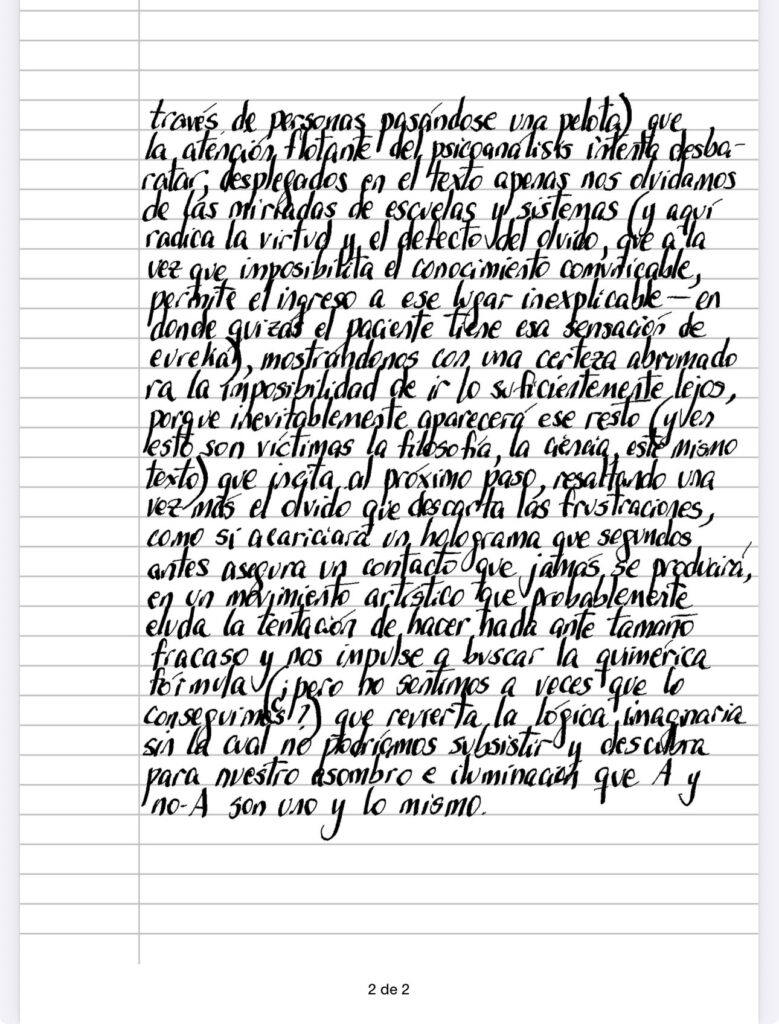 través de personas pasándose una pelota) que
la atención flotante del psicoanálisis intenta desba-
ratar, desplegados en el texto apenas nos olvidamos
de las miríadas de escuelas y sistemas (y aquí
radica la virtud y el defecto del olvido, que a la
vez que imposibilita el conocimiento comunicable,
permite el ingreso a ese lugar inexplicable — en
donde quizás el paciente tiene esa sensación de
eureka), mostrándonos con una certeza abrumado
ra la imposibilidad de ir lo suficientemente lejos,
porque inevitablemente aparecerá ese resto (y en
esto son víctimas la filosofía, la ciencia, este mismo
texto) que incita al próximo paso, resaltando una
vez más el olvido que descarta las frustraciones,
como si acariciara un holograma que segundos
antes asegura un contacto que jamás se producirá,
en un movimiento artístico que probablemente
eluda la tentación de hacer nada ante tamaño
fracaso y nos impulse a buscar la quimérica
fórmula (¿pero no sentimos a veces que lo
conseguimos?) que revierta la lógica imaginaria
sin la cual no podríamos subsistir y descubra
para nuestro asombro e iluminación que A y
no-A son uno y lo mismo.
2 de 2